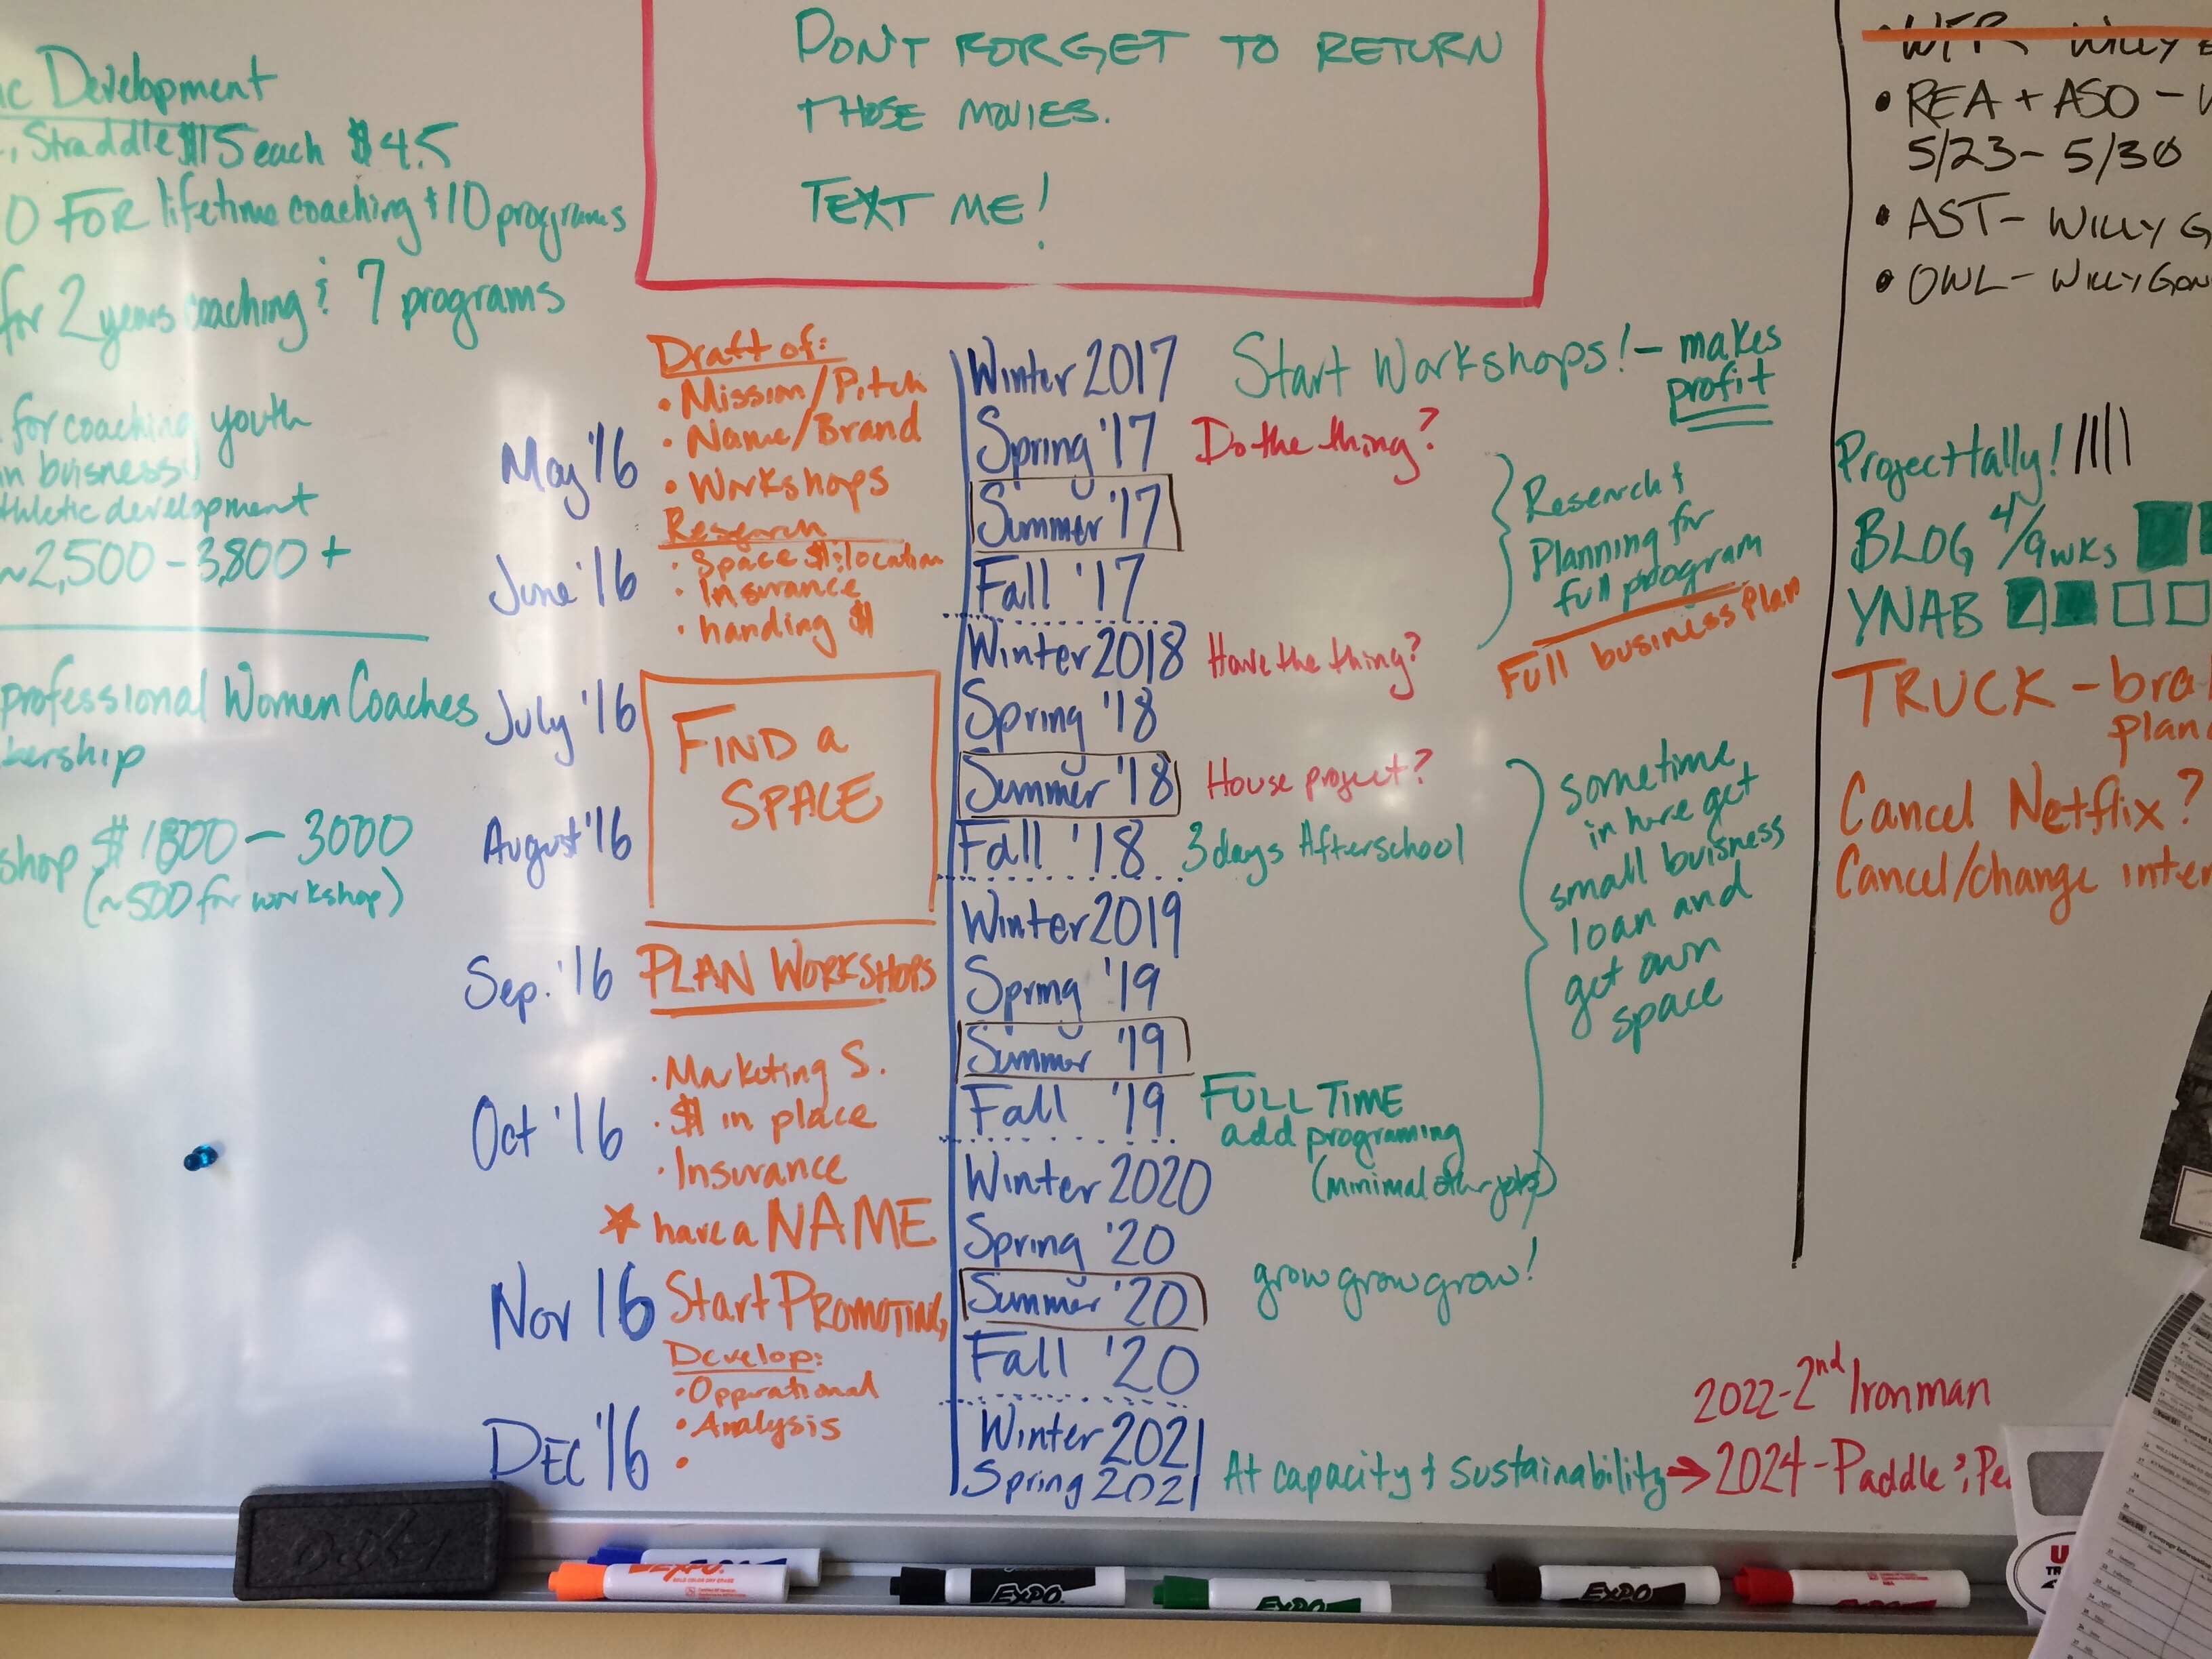 DON'T FORGET TO RETURN
THOSE MOVIES.
TEXT ME!
ic Development
, Straddle $15 each $45
0 FOR lifetime coaching + 10 programs
for 2 years coaching & 7 programs
for coaching youth
in buisness
thletic development
~2,500 - 3,800 +
professional Women Coaches
bership
shop $1800 - 3000
(~500 for workshop)
May '16
June '16
July '16
August '16
Sep. '16
Oct '16
Nov 16
DEC '16
Draft of:
• Mission/Pitch
• Name/Brand
• Workshops
Research
• Space $ & location
• Insurance
• handing $
FIND a
SPACE
PLAN WORKSHOPS
• Marketing S.
• $ in place
• Insurance
* have a NAME
Start PROMOTING,
Develop:
• Opperational
• Analysis
•
Winter 2017
Spring '17
Summer '17
Fall '17
Winter 2018
Spring '18
Summer '18
Fall '18
Winter 2019
Spring '19
Summer '19
Fall '19
Winter 2020
Spring '20
Summer '20
Fall '20
Winter 2021
Spring 2021
Start Workshops! - makes
profit
Do the thing?
Research +
Planning for
full program
Full business plan
Have the thing?
House project?
3 days Afterschool
sometime
in here get
small buisness
loan and
get own
space
FULL TIME
add programing
(minimal other jobs)
grow grow grow!
At capacity + sustainability → 2024 - Paddle & Pe
2022 - 2nd Ironman
• WFR - WILLY
• REA + ASO -
5/23 - 5/30
• AST - WILLY G
• OWL - WILLY GON
Project tally! ||||
BLOG 4/9 wks
YNAB
TRUCK - bra
plan
Cancel Netflix?
Cancel/change inter
EXPO
EXPO
EXPO
EXPO